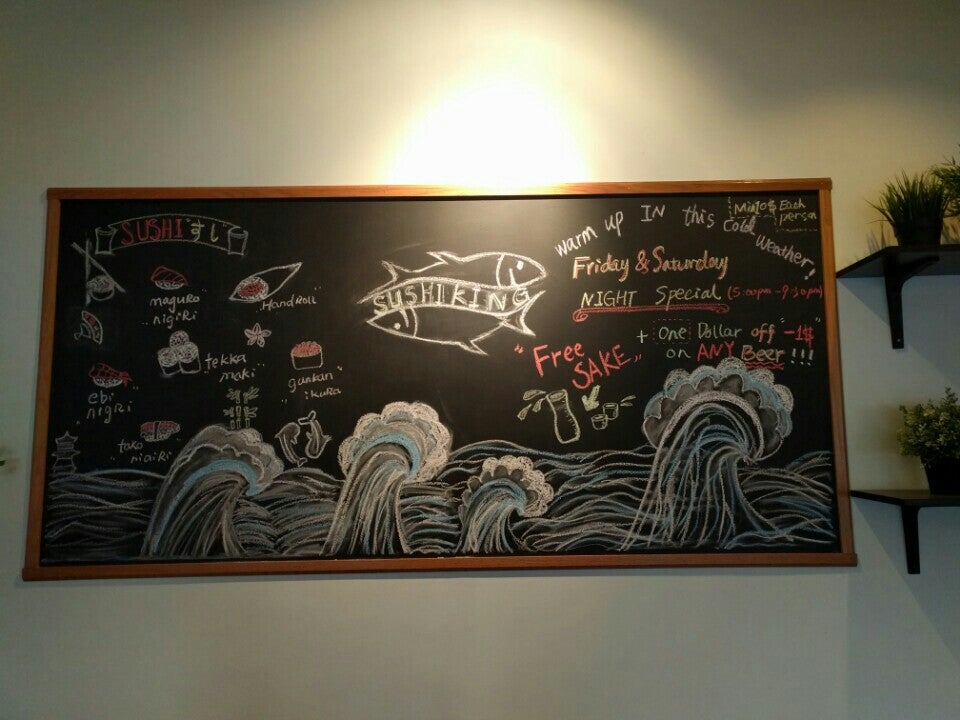 SUSHI すし
maguRo
nigiRi
HandRoll
tekka
maki
gunkan
ikuRa
ebi
nigRi
tako
nigiRi
SUSHI KING
warm up IN this Cold weather!
Min10$ Each
person
Friday & Saturday
NIGHT Special (5:00pm-9:30pm)
+ One Dollar off "-1$"
on ANY Beer!!!
"Free
SAKE"